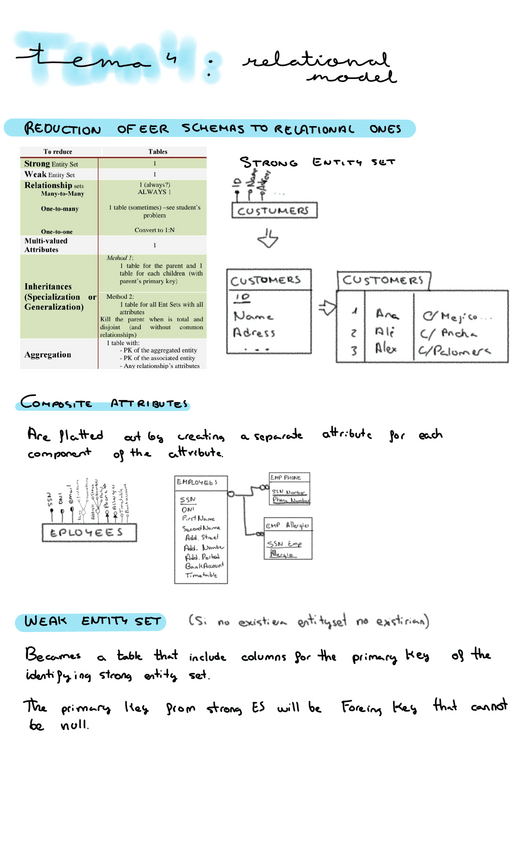 tema 4: relational
model
REDUCTION OF EER SCHEMAS TO RELATIONAL ONES
To reduce Tables
Strong Entity Set 1
Weak Entity Set 1
Relationship sets 1 (always?)
Many-to-Many ALWAYS 1
One-to-many 1 table (sometimes) –see student's
problem
One-to-one Convert to 1:N
Multi-valued
Attributes 1
Inheritances
(Specialization or
Generalization)
Method 1:
1 table for the parent and 1
table for each children (with
parent's primary key)
Method 2:
1 table for all Ent Sets with all
attributes
Kill the parent when is total and
disjoint (and without common
relationships)
Aggregation
1 table with:
- PK of the aggregated entity
- PK of the associated entity
- Any relationship's attributes
STRONG ENTITY SET
ID
Name
...
CUSTUMERS
CUSTOMERS
ID
Name
Adress
...
CUSTOMERS
1 Ana C/Mejico...
2 Ali C/ Ancha
3 Alex C/Palomera
COMPOSITE ATTRIBUTES
Are flatted out by creating a separate attribute for each
component of the attribute.
SSN
DNI
Email
EPLOYEES
EMPLOYEES
SSN
DNI
First Name
Second Name
Add. Street
Add. Number
Add. Portal
Bank Account
Timetable
EMP PHONE
SSN Number
Phone Number
EMP Allergies
SSN Emp
Allergie
WEAK ENTITY SET (Si no existiera entityset no existirian)
Becomes a table that include columns for the primary key of the
identifying strong entity set.
The primary key from strong ES will be Foreing Key that cannot
be null.